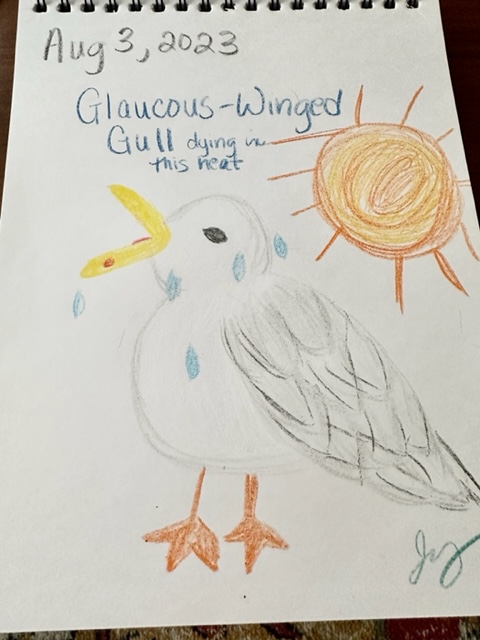 Aug 3, 2023
Glaucous-Winged
Gull dying in
this heat